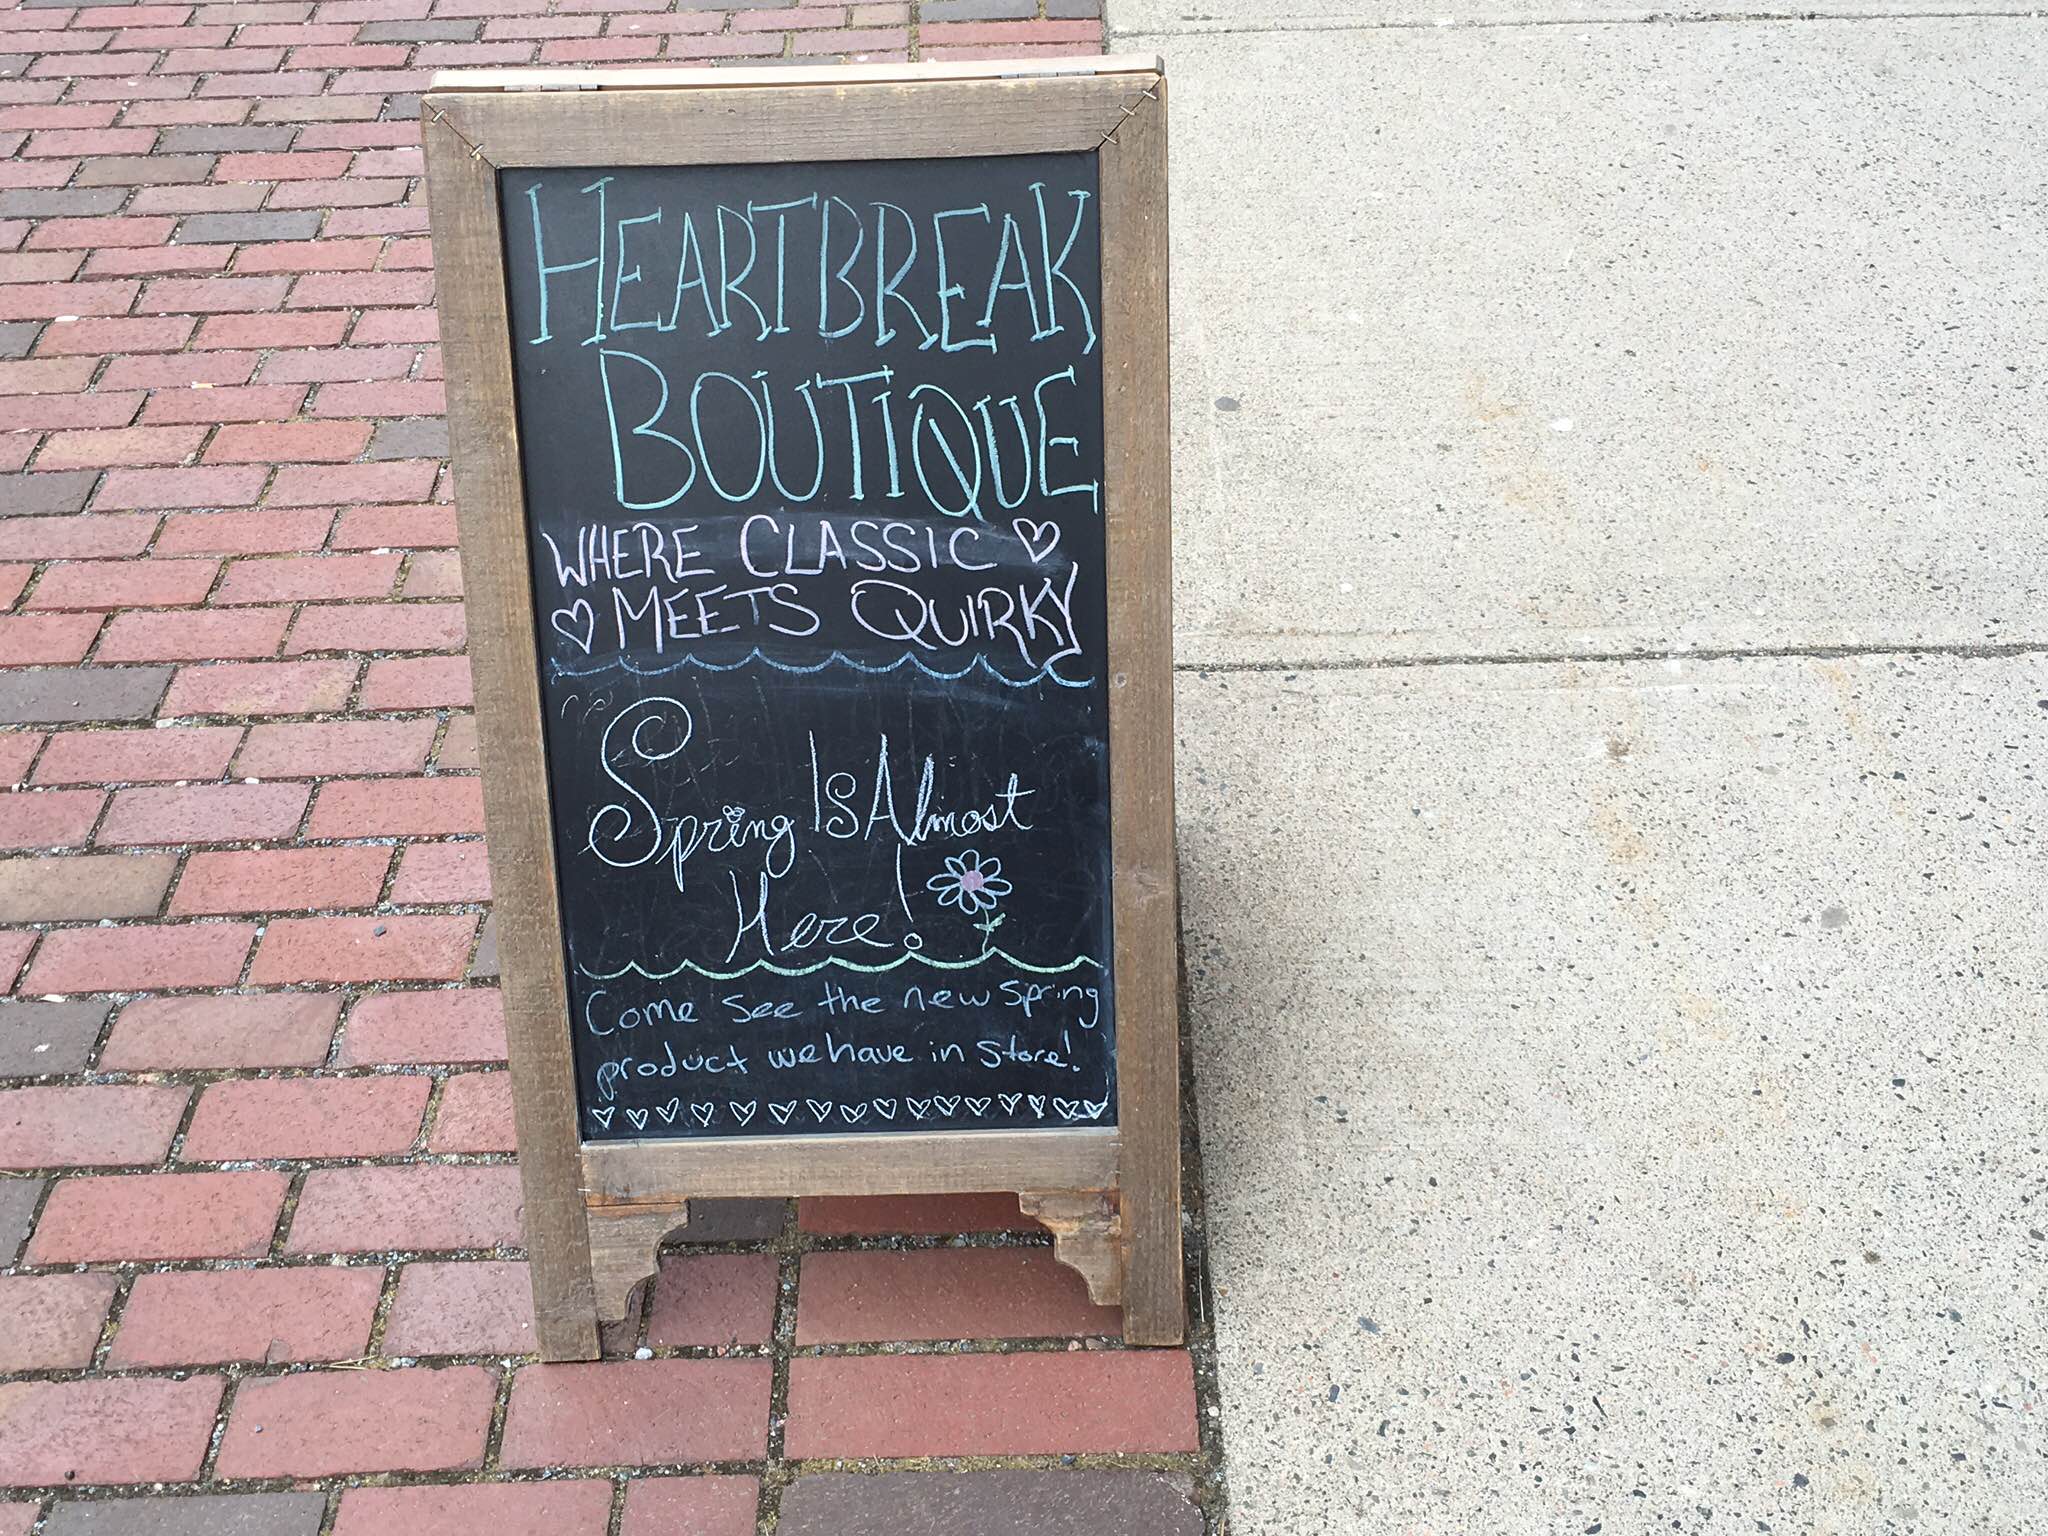 HEARTBREAK
BOUTIQUE
WHERE CLASSIC
MEETS QUIRKY
Spring Is Almost
Here!
Come see the new spring
product we have in store!